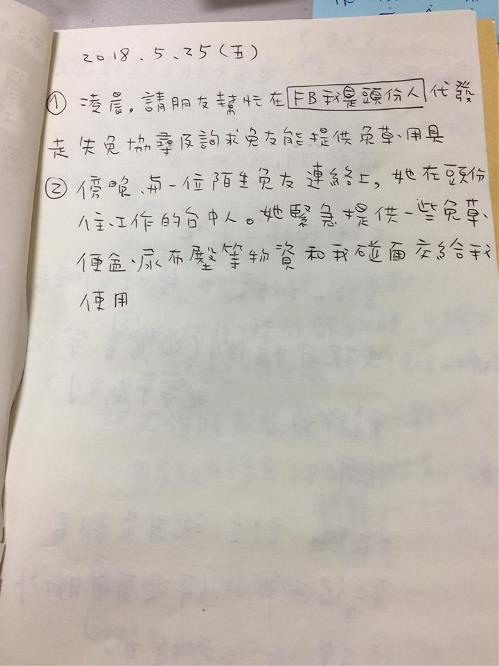 2018.5.25(五)
① 凌晨,請朋友幫忙在FB我是頭份人代發
走失兔協尋及詢求兔友能提供兔草、用具
② 傍晚,與一位陌生兔友連絡上,她在頭份
住、工作的台中人。她緊急提供一些兔草、
便盆、尿布墊等物資和我碰面交給我
使用